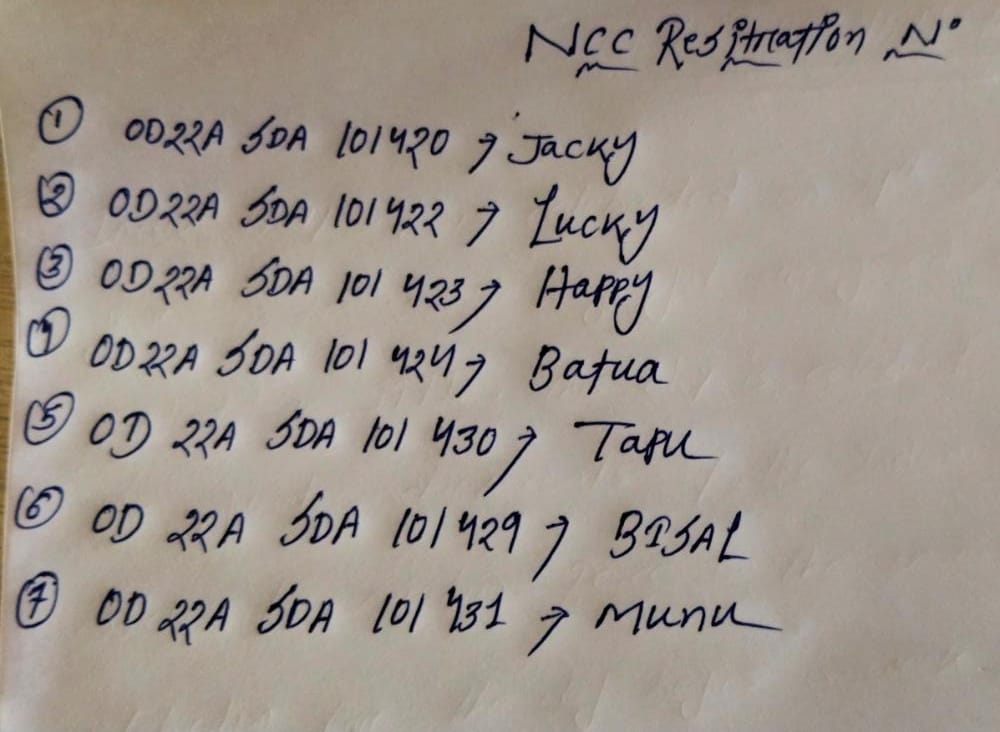 NCC Resitration N°
① OD22A SDA 101420 → Jacky
② OD22A SDA 101422 → Lucky
③ OD22A SDA 101 423 → Happy
④ OD22A SDA 101 424 → Batua
⑤ OD 22A SDA 101 430 → Tapu
⑥ OD 22A SDA 101429 → BISAL
⑦ OD 22A SDA 101 431 → Munu